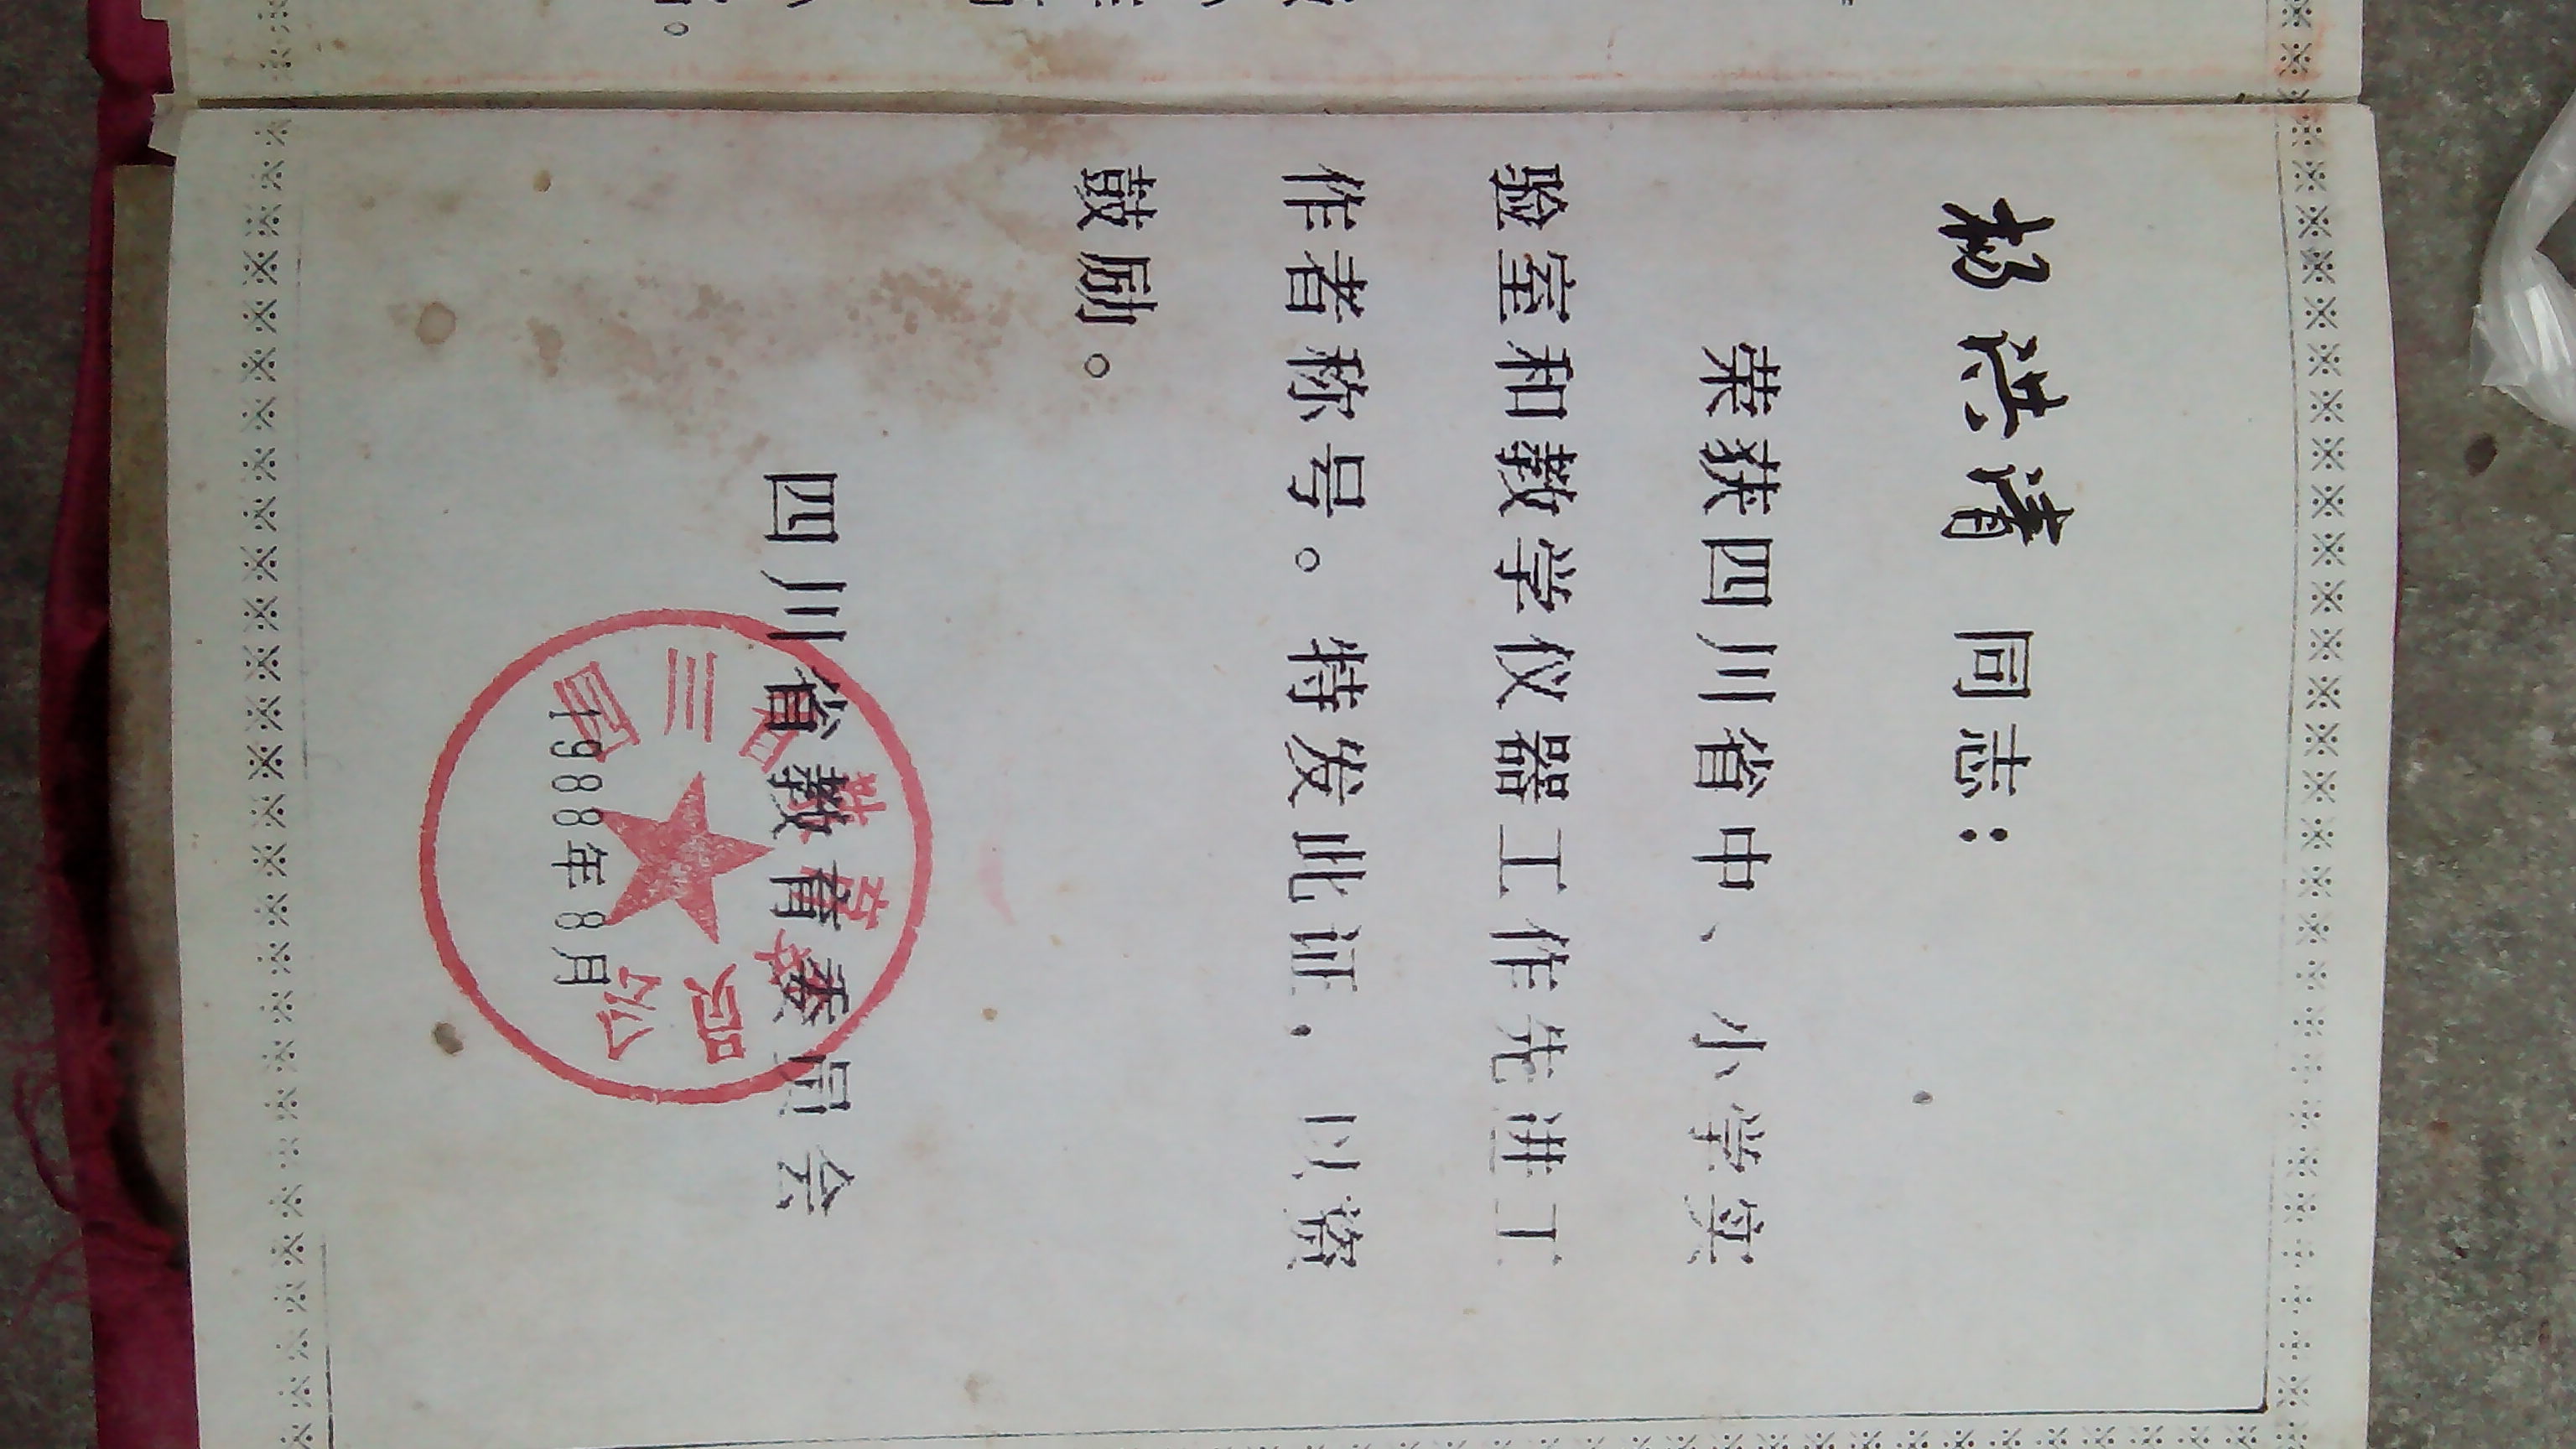 杨洪清 同志：
荣获四川省中、小学实
验室和教学仪器工作先进工
作者称号。特发此证，以资
鼓励。
四川省教育委员会
1988年8月
四川省教育委员会